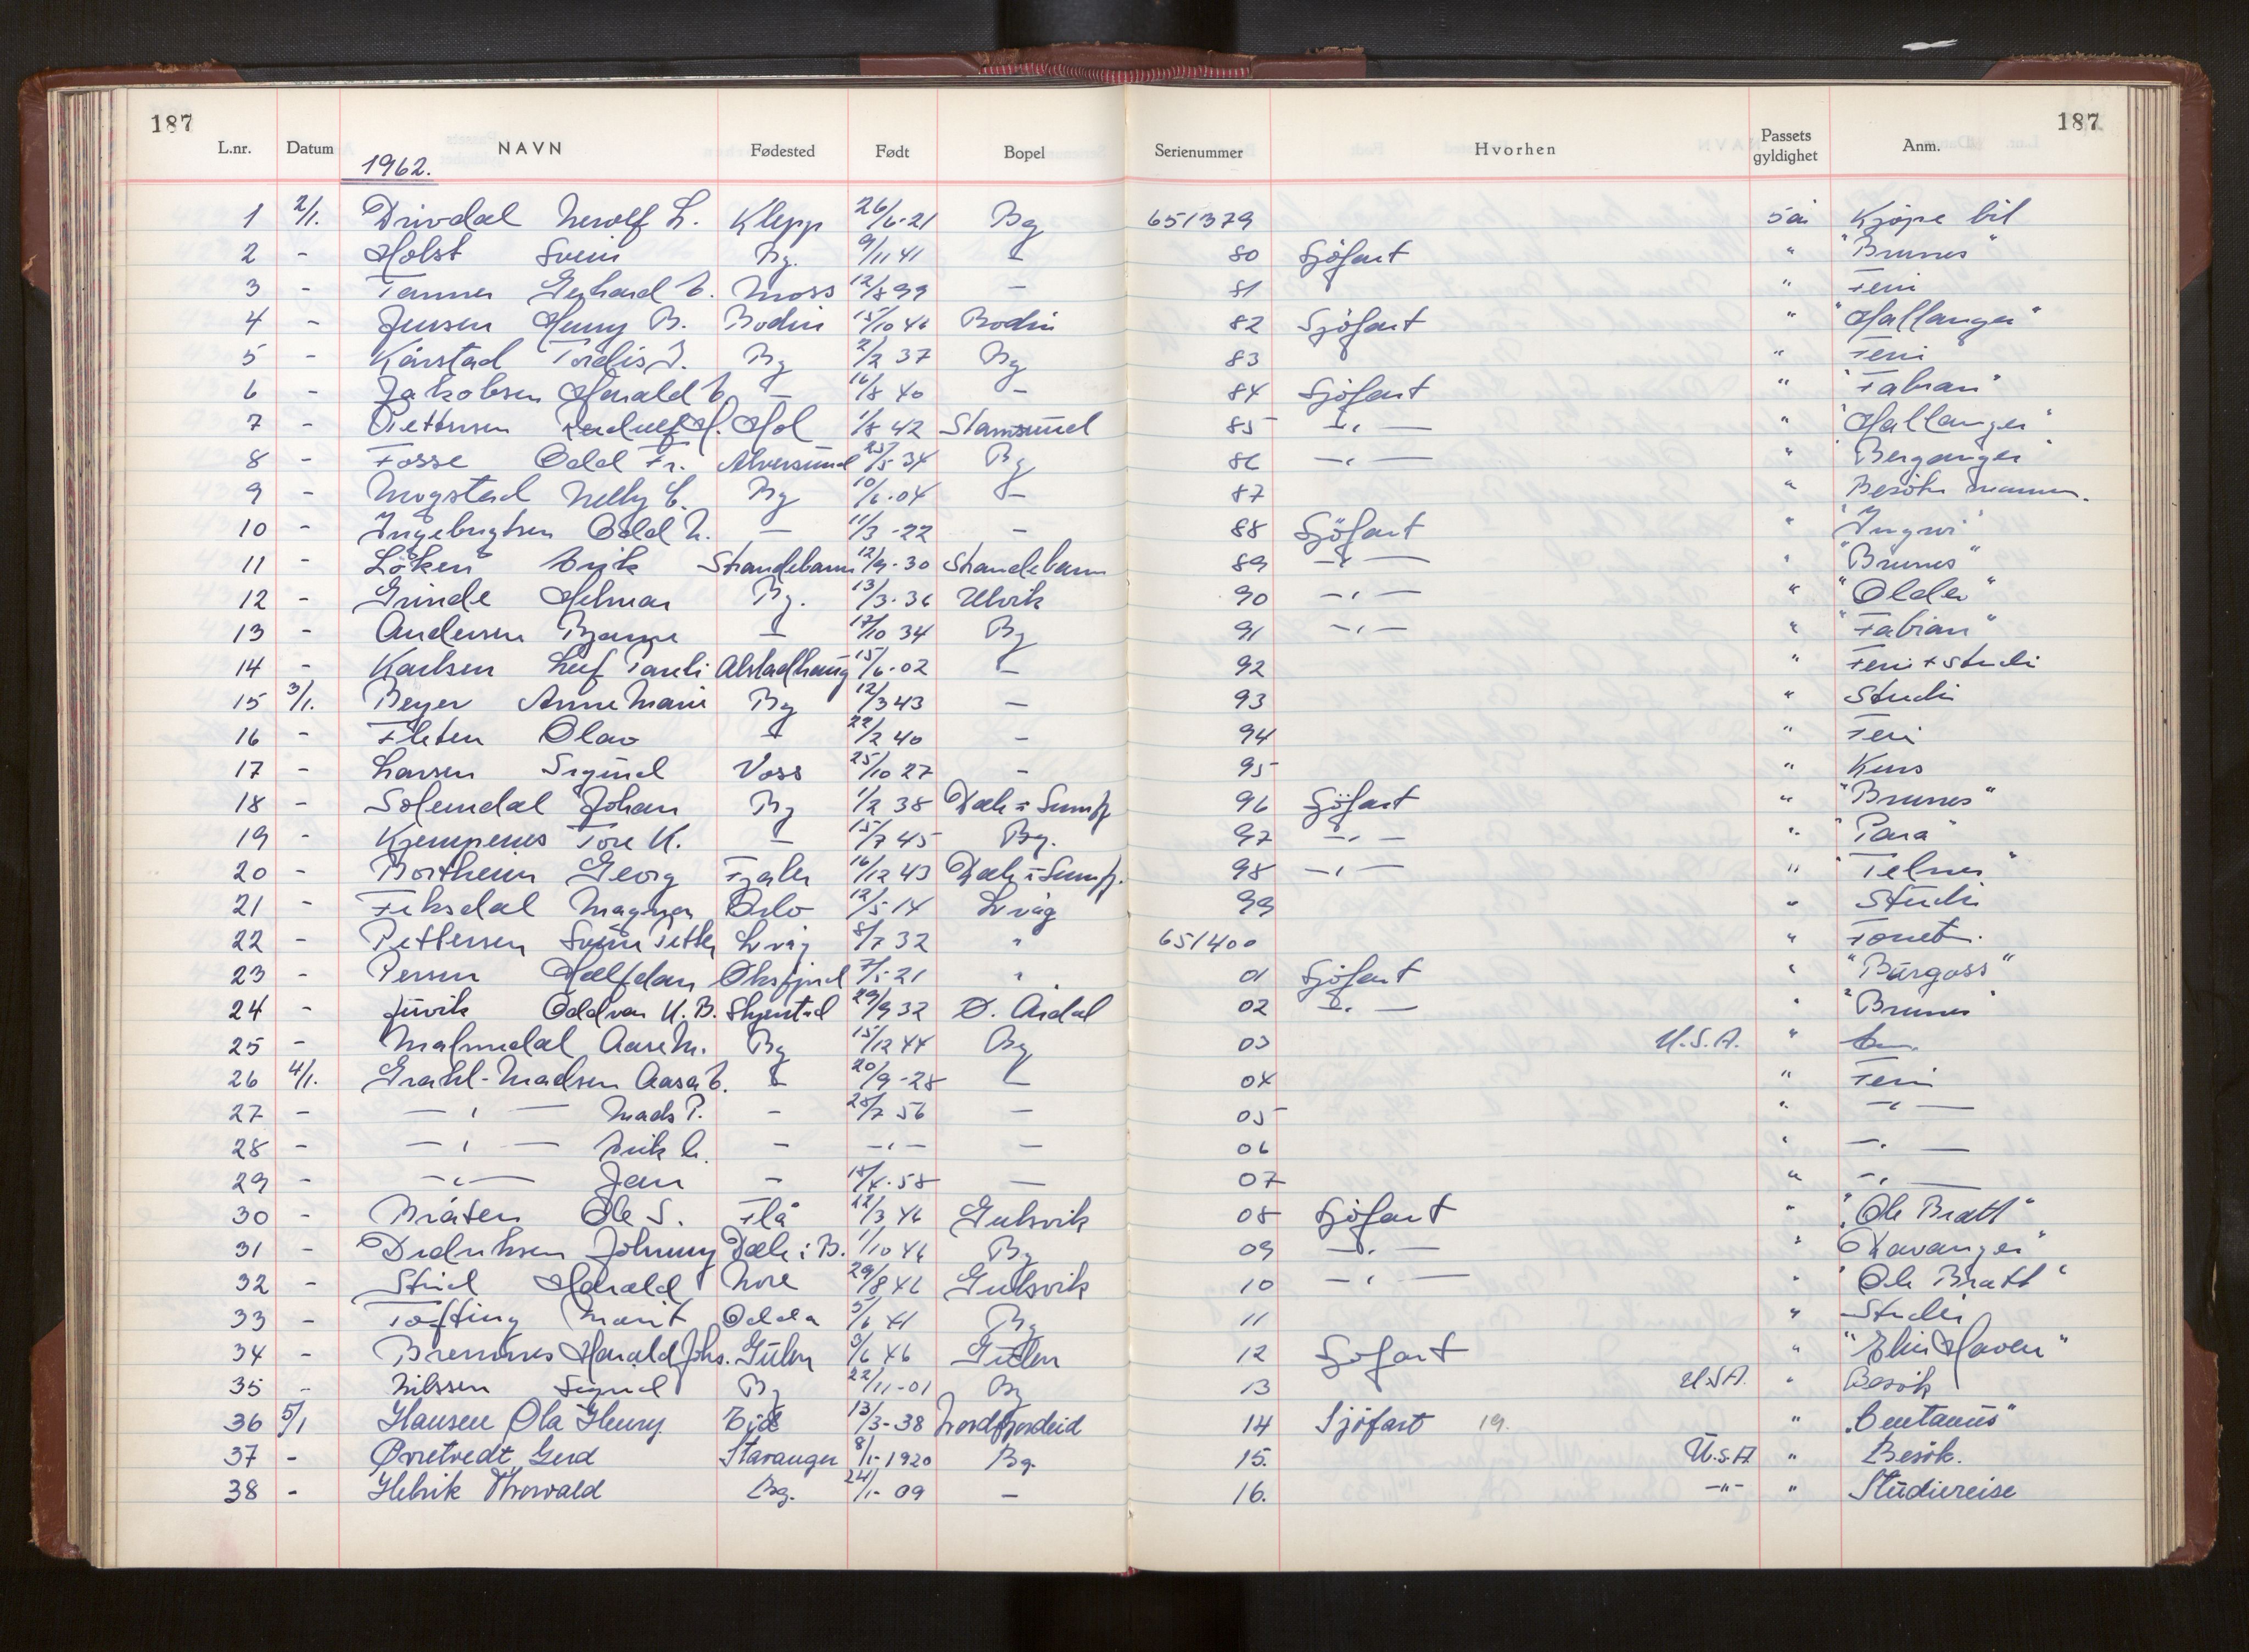 187 187
L.nr. Datum NAVN Fødested Født Bopel Serienummer Hvorhen Passets gyldighet Anm.
1962.
1 2/1. Drivdal L. Klepp 26/6-21 Bg 651379 5 år Kjøpe bil
2 - Holst Svein Bg. 9/11 41 - 80 Sjøfart " "Brunes"
3 - Tanner Gerhard C. Moss 12/8 99 - 81 " Feri
4 - Jensen Henny B. Bodin 15/10 46 Bodin 82 Sjøfart " "Hallanger"
5 - Kårstad Tordis J. Bg 2/2 37 Bg 83 " Feri
6 - Jakobsen Harald C. - 16/8 40 - 84 Sjøfart " "Fabian"
7 - Pettersen H. Hol 1/8 42 Stamsund 85 -"- " "Hallanger"
8 - Fosse Odd Fr. Alversund 25/5 34 Bg 86 -"- " "Berganger"
9 - Mogstad Nelly C. Bg 10/6-04 - 87 " Besøke mannen.
10 - Ingebrigtsen Odd N. - 11/3-22 - 88 Sjøfart " "Ingwi"
11 - Løken Erik Strandebarm 12/9-30 Strandebarm 89 -"- " "Brunes"
12 - Grinde Helmar Bg. 13/3-36 Ulvik 90 -"- " "Older"
13 - Andersen Bjarne - 17/10 34 Bg 91 -"- " "Fabian"
14 - Karlsen Leif Pareli Alstadhaug 15/6-02 - 92 " Feri + studi
15 3/1. Beyer Anne Marie Bg 12/3 43 - 93 " Studi
16 - Fleten Olav - 22/2 40 - 94 " Feri
17 - Larsen Sigmund Voss 25/10 27 - 95 " Kurs
18 - Solemdal Johan Bg 1/2 38 Dale i Sunnfj. 96 Sjøfart " "Brunes"
19 - Kjempenes Tore K. - 15/7 45 Bg. 97 -"- " "Tara"
20 - Bortheim Georg Fjaler 16/12 43 Dale i Sunnfj. 98 -"- " "Telnes"
21 - Feksdal Magnar Oslo 12/5-14 L.våg 99 " Studi
22 - Pettersen Svein Petter L.våg 8/7 32 " 651400 " Forret.
23 - Halfdan Øksfjord 7/5-21 " 01 Sjøfart " "Burgoss"
24 - Juvik Oddvar K. B. Skjerstad 29/9 32 Ø. Årdal 02 -"- " "Brunes"
25 - Malmedal Aase M. Bg 15/12 44 Bg 03 U.S.A. "
26 4/1. Grahl-Madsen Aasa C. - 20/9-28 - 04 " Feri
27 - -"- Mads P. - 28/7 56 - 05 " -"-
28 - -"- Erik C. - -"- - 06 " -"-
29 - -"- Jan - 18/4-58 - 07 " -"-
30 - Bråten Ole S. Flå 22/3 46 Gulsvik 08 Sjøfart " "Ole Bratt"
31 - Didriksen Johnny Dale i B. 1/10 46 Bg 09 -"- " "Davanger"
32 - Strid Harald Nore 29/8 46 Gulsvik 10 -"- " "Ole Bratt"
33 - Tofting Marit Odda 5/6 41 Bg 11 " Studi
34 - Bremnes Harald Johs. Gulen 3/6 46 Gulen 12 Sjøfart " "Elin Haven"
35 - Nilssen Sigurd Bg 22/11-01 Bg 13 U.S.A. " Besøk
36 5/1 Hansen Ola Henry. Eid 13/3-38 Nordfjordeid 14 Sjøfart 19. " "Centaurus"
37 - Øvretvedt, Gerd Stavanger 8/1-1920 Bg. 15. U.S.A " Besøk.
38 - Helvik Thorvald Bg. 24/1-09 - 16. -"- " Studiereise